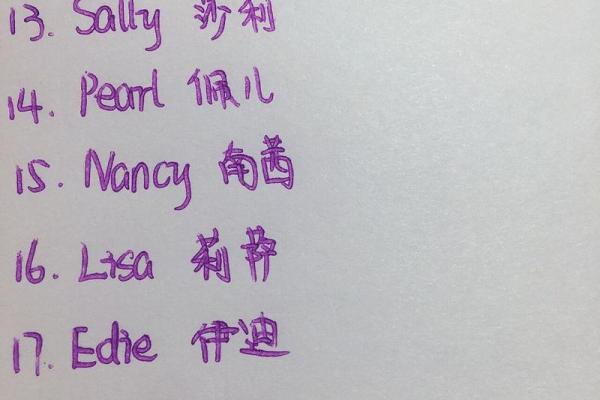 13. Sally 莎利
14. Pearl 佩儿
15. Nancy 南茜
16. Lisa 莉萨
17. Edie 伊迪